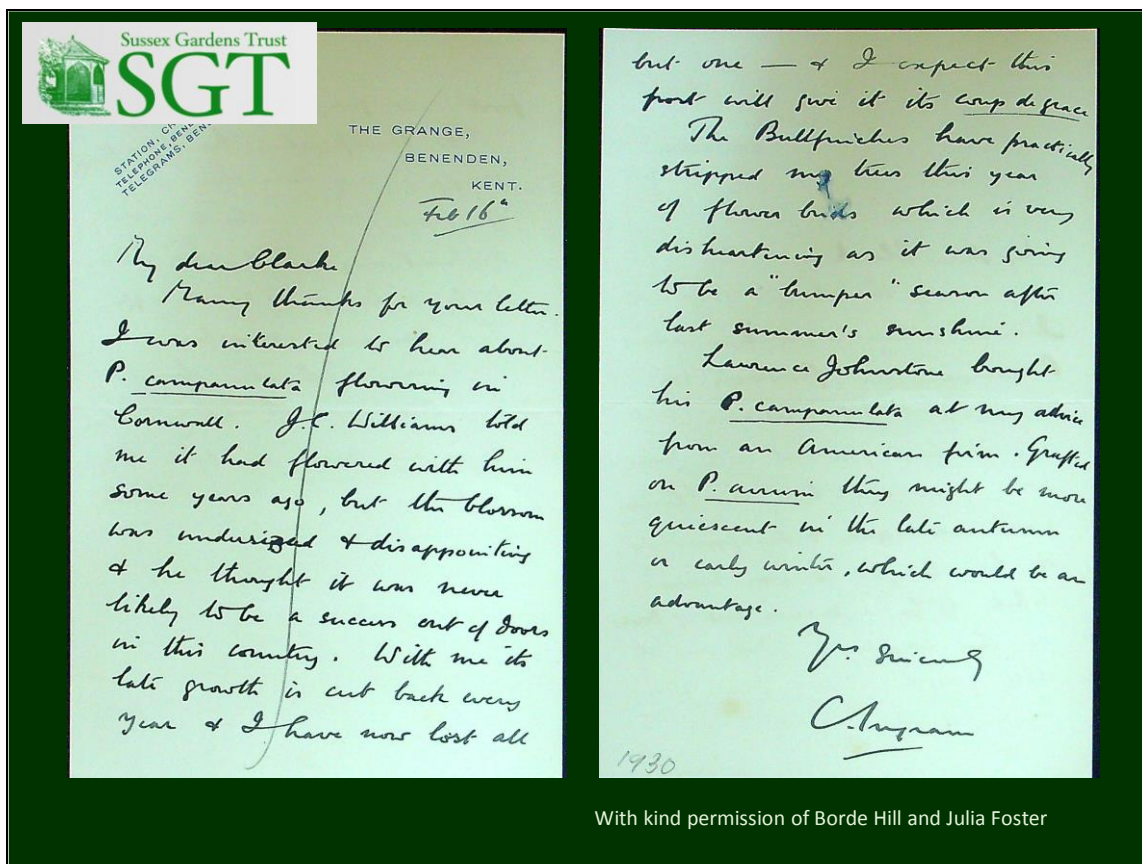 Sussex Gardens Trust
SGT
STATION, CR
TELEPHONE, BENE
TELEGRAMS, BEN
THE GRANGE,
BENENDEN,
KENT.
Feb 16th
My dear Clarke
Many thanks for your letter.
I was interested to hear about
P. campanulata flowering in
Cornwall. J.C. Williams told
me it had flowered with him
some years ago, but the blossom
was undersized & disappointing
& he thought it was never
likely to be a success out of doors
in this country. With me its
late growth is cut back every
year & I have now lost all
but one — & I expect this
frost will give it its coup de grace
The Bullfinches have practically
stripped my trees this year
of flower buds which is very
disheartening as it was going
to be a "bumper" season after
last summer's sunshine.
Lawrence Johnstone brought
his P. campanulata at my advice
from an American firm. Grafted
on P. avium they might be more
quiescent in the late autumn
or early winter, which would be an
advantage.
Yrs. sincerely
C. Ingram
1930
With kind permission of Borde Hill and Julia Foster